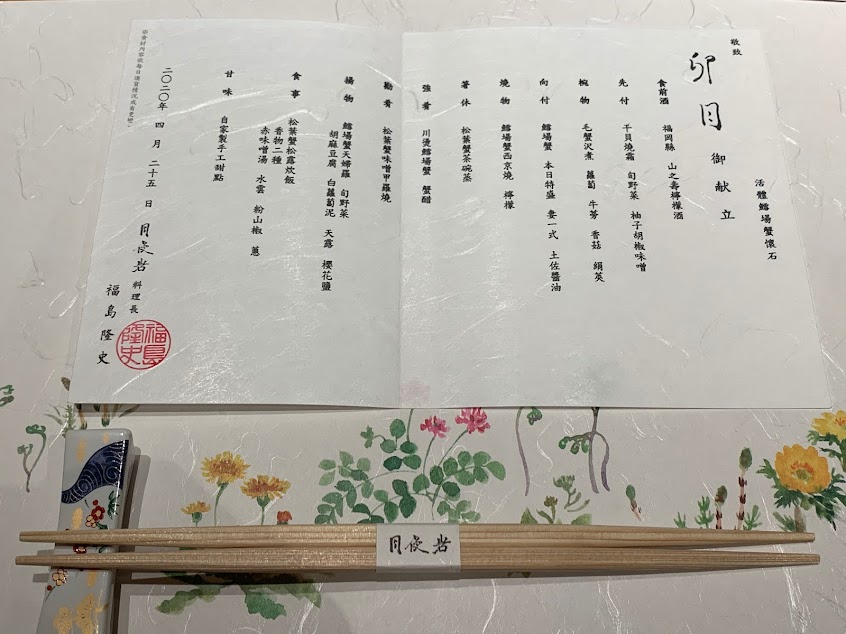 敬致
卯月 御献立
活體鱈場蟹懐石
食前酒 福岡縣 山之壽檸檬酒
先付 干貝燒霜 旬野菜 柚子胡椒味噌
椀物 毛蟹沢煮 蘿蔔 牛蒡 香菇 絹英
向付 鱈場蟹 本日特盛 妻一式 土佐醬油
燒物 鱈場蟹西京燒 檸檬
箸休 松葉蟹茶碗蒸
強肴 川燙鱈場蟹 蟹醋
勸肴 松葉蟹味噌甲羅燒
揚物 鱈場蟹天婦羅 旬野菜
胡麻豆腐 白蘿蔔泥 天露 櫻花鹽
食事 松葉蟹松露炊飯
香物二種
赤味噌湯 水雲 粉山椒 蔥
甘味 自家製手工甜點
二〇二〇年 四月 二十五日
料理長
福島隆史
福島隆史